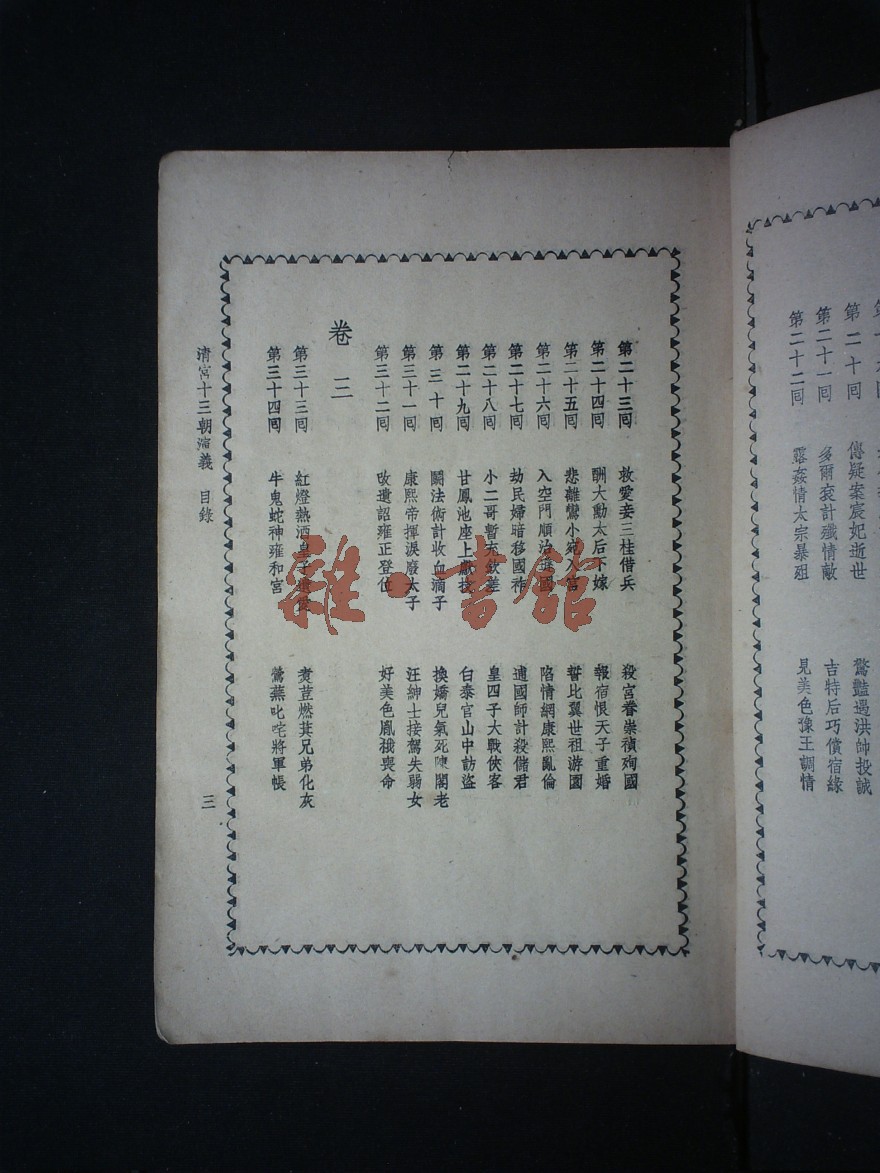 第二十回　傳疑案宸妃逝世　驚豔遇洪帥投誠
第二十一回　多爾袞計殲情敵　吉特后巧償宿緣
第二十二回　露姦情太宗暴殂　見美色豫王調情
第二十三回　救愛妾三桂借兵　殺宮眷崇禎殉國
第二十四回　酬大勳太后下嫁　報宿恨天子重婚
第二十五回　悲離鸞小宛入宮　誓比翼世祖游園
第二十六回　入空門順治遜國　陷情網康熙亂倫
第二十七回　劫民婦暗移國祚　遣國師計殺儲君
第二十八回　小二哥暫充欽差　皇四子大戰俠客
第二十九回　甘鳳池座上獻技　白泰官山中訪盜
第三十回　鬬法術計收血滴子　換嬌兒氣死陳閣老
第三十一回　康熙帝揮淚廢太子　汪紳士接駕失弱女
第三十二回　改遺詔雍正登位　好美色胤禩喪命
卷三
第三十三回　紅燈熱酒皇子　煑荳燃萁兄弟化灰
第三十四回　牛鬼蛇神雍和宮　鶯燕叱咤將軍帳
清宮十三朝演義　目錄
三
雜·書館